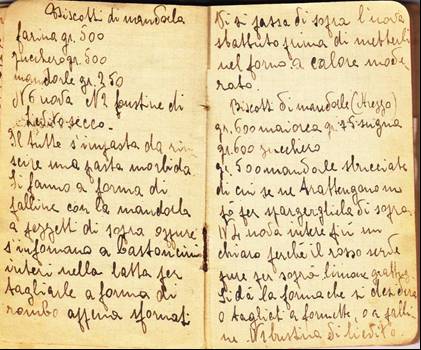 Biscotti di mandorla
farina gr. 500
zucchero gr. 500
mandorle gr. 250
N 6 uova N 2 bustine di
lievito secco.
Il tutto s'impasta da riu
scire una pasta morbida
Si fanno a forma di
palline con la mandorla
a pezzetti di sopra oppure
s'infornano a bastoncini
interi nella latta per
tagliarle a forma di
rombo appena sfornati
Vi si passa di sopra l'uovo
sbattuto prima di metterli
nel forno a calore mode
rato.
Biscotti di mandorle (Arezzo)
gr. 600 maiorca gr. 75 sugna
gr. 600 zucchero
gr. 500 mandorle stricciate
di cui se ne trattengono un
pò per spargergliela di sopra.
N 4 uova intere più un
chiaro perchè il rosso serve
pure per sopra limone grattug
Si dà la forma che si desidera
o tagliati a formette, o a palli
ne. N 1 bustina di lievito.